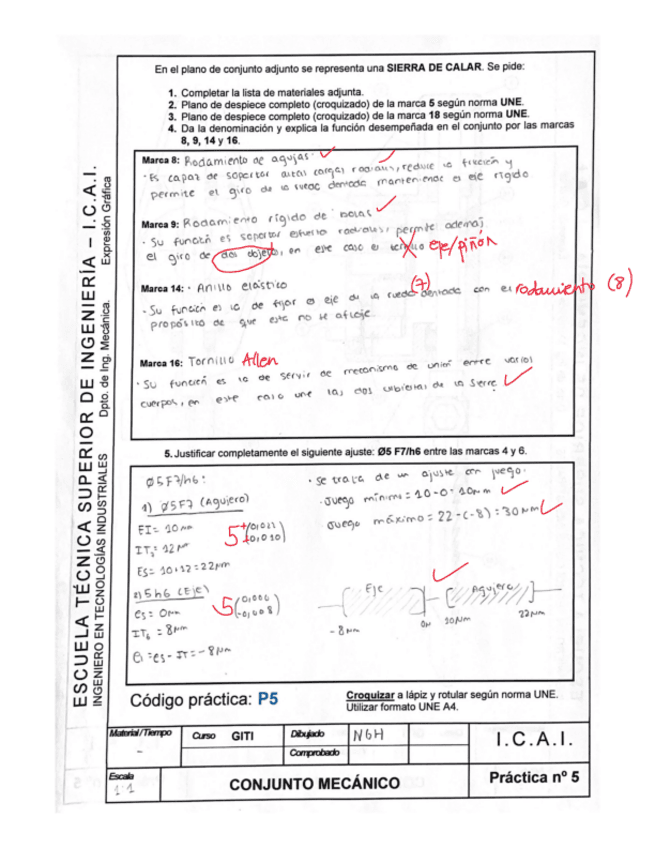 En el plano de conjunto adjunto se representa una SIERRA DE CALAR. Se pide:
1. Completar la lista de materiales adjunta.
2. Plano de despiece completo (croquizado) de la marca 5 según norma UNE.
3. Plano de despiece completo (croquizado) de la marca 18 según norma UNE.
4. Da la denominación y explica la función desempeñada en el conjunto por las marcas
8, 9, 14 y 16.
Marca 8: Rodamiento de agujas.
· Es capaz de soportar altas cargas radiales, reduce la fricción y
permite el giro de la rueda dentada manteniendo el eje rígido
Marca 9: Rodamiento rígido de bolas
· Su función es soportar esfuerzo radiales, permite además
el giro de dos objetos, en este caso el eje/piñón
Marca 14: · Anillo elástico
(7)
· Su función es la de fijar el eje de la rueda dentada con el rodamiento (8)
propósito de que este no se afloje.
Marca 16: Tornillo Allen
· Su función es la de servir de mecanismo de unión entre varios
cuerpos, en este caso une las dos cubiertas de la sierra
5. Justificar completamente el siguiente ajuste: Ø5 F7/h6 entre las marcas 4 y 6.
Ø5F7/h6:
1) Ø5F7 (Agujero)
EI = 10 µm
IT7 = 12 µm
ES = 10+12 = 22µm
5 (+0,022
+0,010)
2) 5h6 (Eje)
es = 0µm
IT6 = 8µm
ei = es - IT = -8µm
5 (0,000
-0,008)
· Se trata de un ajuste con juego.
· Juego mínimo = 10-0 = 10µm
Juego máximo = 22-(-8) = 30µm
Eje
Agujero
-8µm
0µ
10µm
22µm
Código práctica: P5
Croquizar a lápiz y rotular según norma UNE.
Utilizar formato UNE A4.
ESCUELA TÉCNICA SUPERIOR DE INGENIERÍA – I.C.A.I.
INGENIERO EN TECNOLOGÍAS INDUSTRIALES
Dpto. de Ing. Mecánica.
Expresión Gráfica
Material/Tiempo
–
Curso GITI
Dibujado
NGH
Comprobado
I.C.A.I.
Escala
1:1
CONJUNTO MECÁNICO
Práctica nº 5